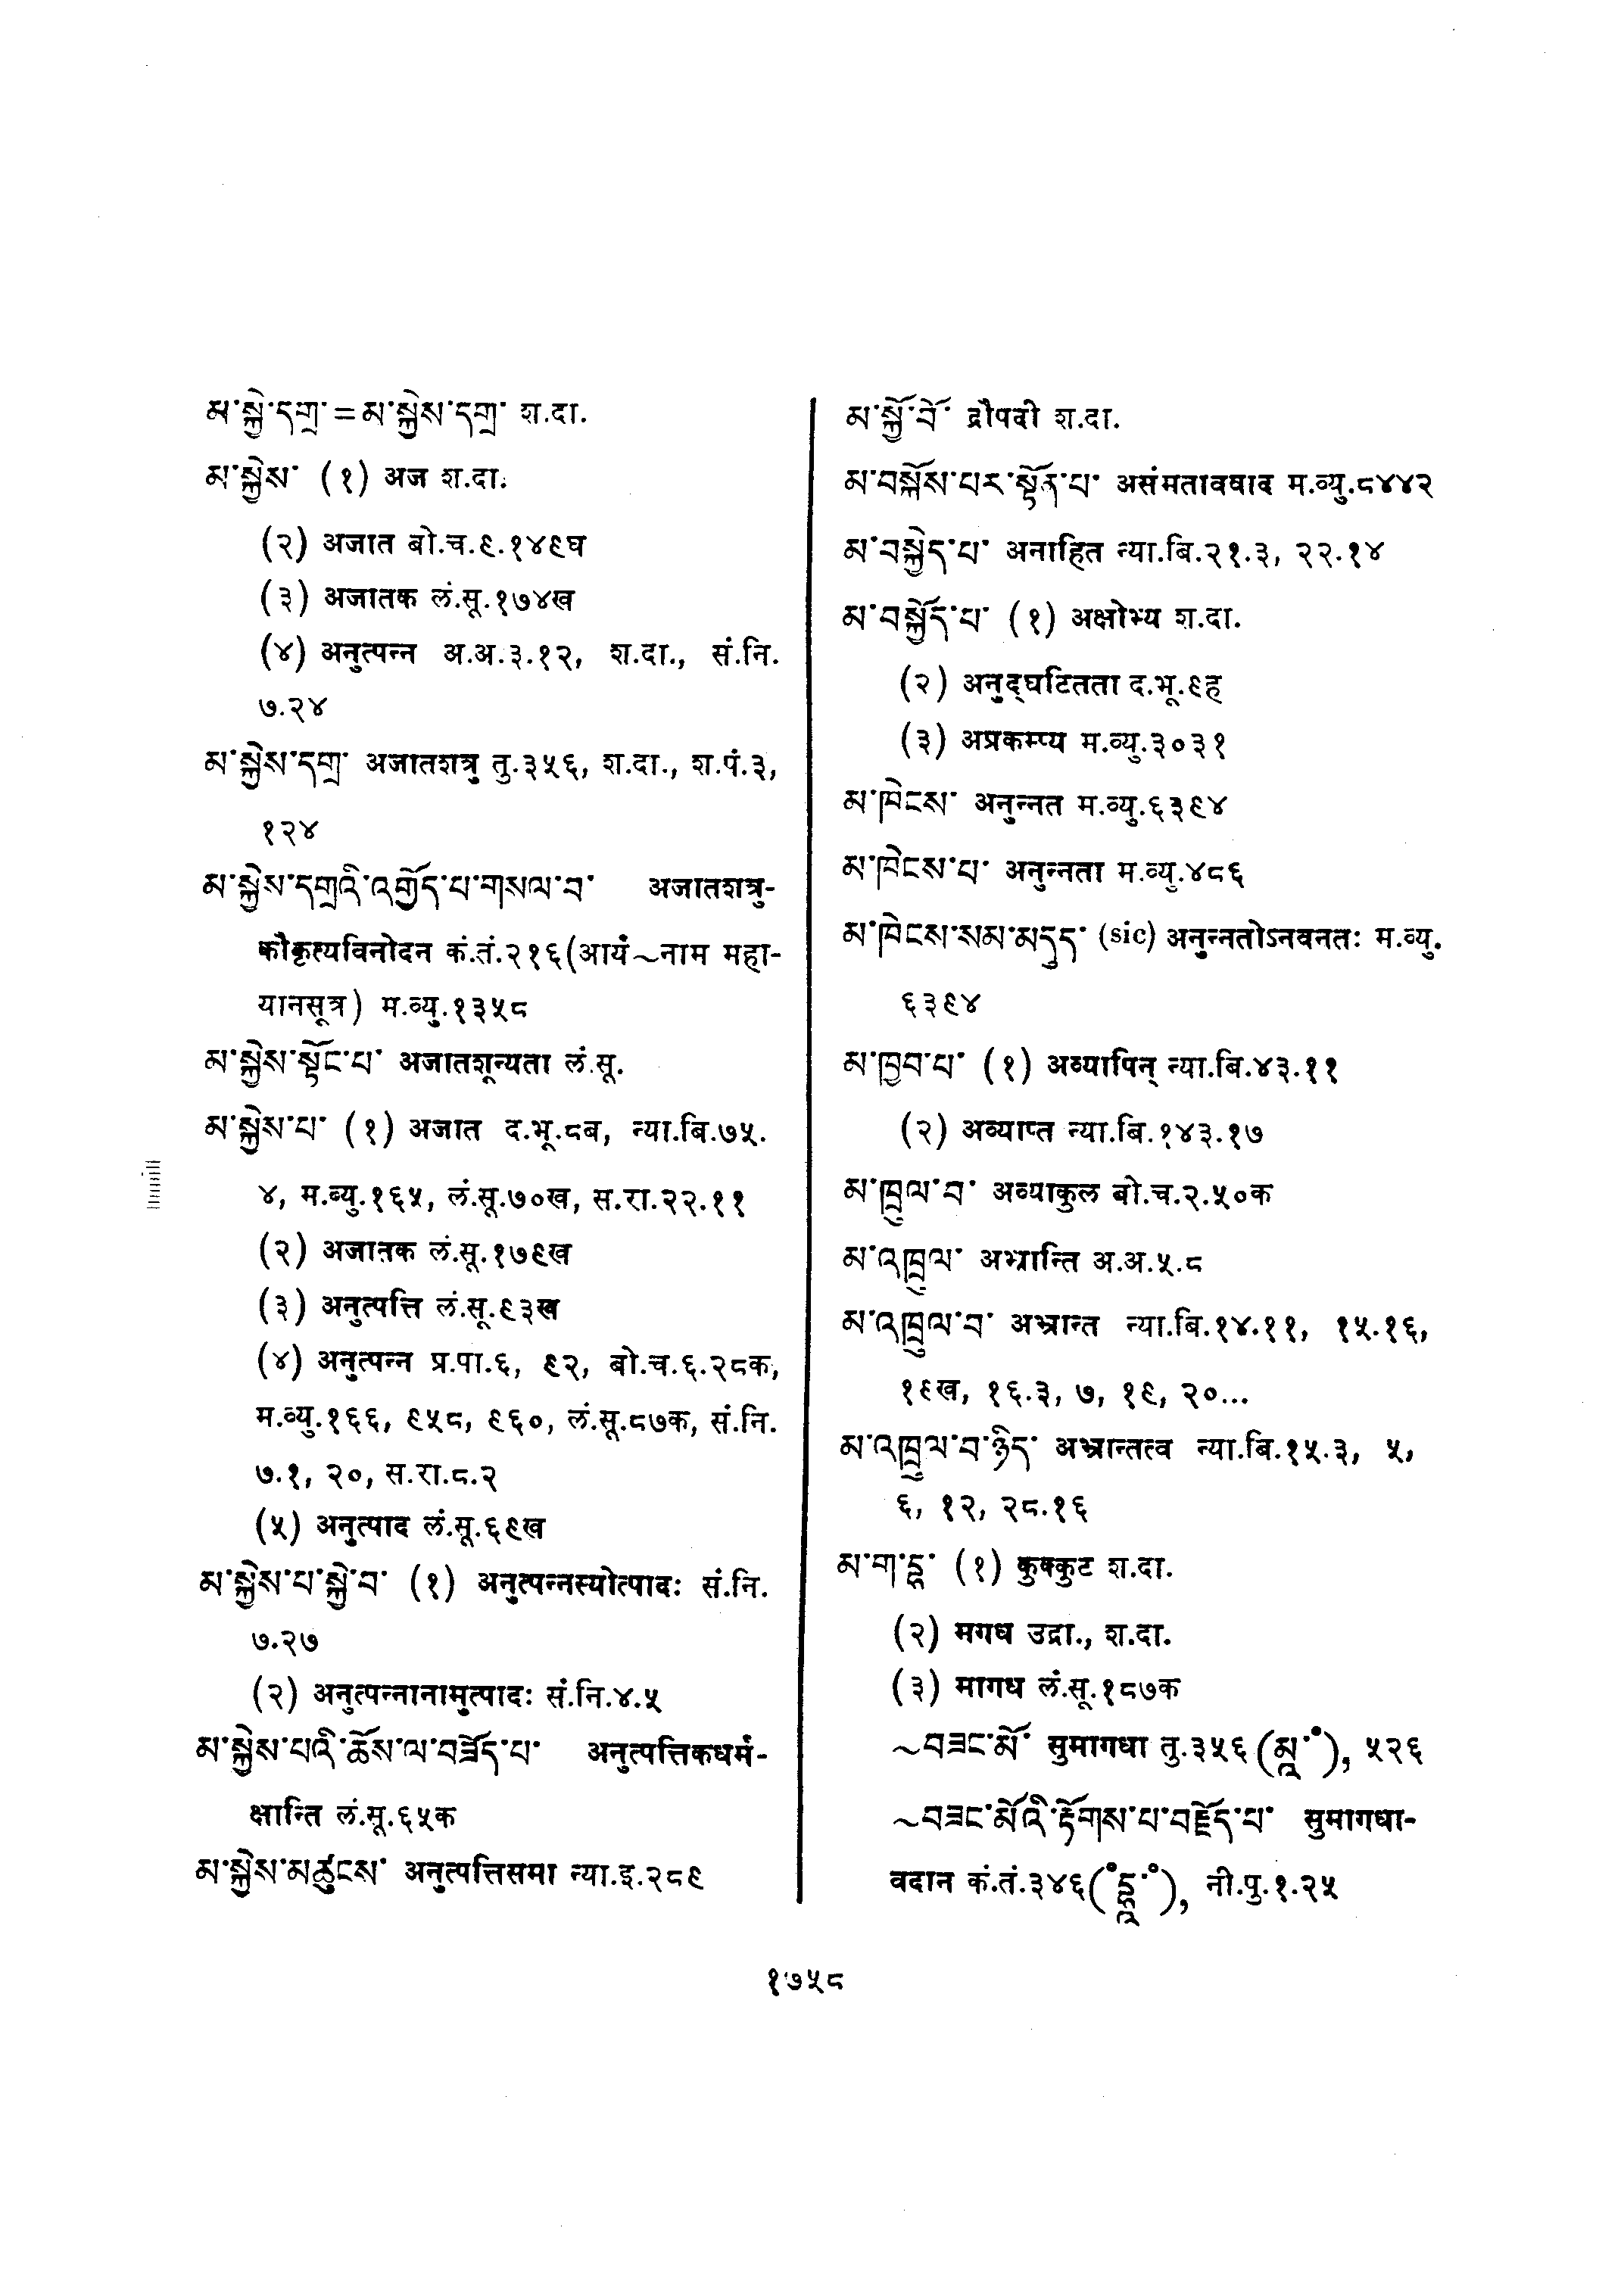 མ་སྐྱེ་དགྲ་ = མ་སྐྱེས་དགྲ་ श.दा.
མ་སྐྱེས་ (१) अज श.दा.
(२) अजात बो.च.९.१४९घ
(३) अजातक लं.सू.१७४ख
(४) अनुत्पन्न अ.अ.३.१२, श.दा., सं.नि.
७.२४
མ་སྐྱེས་དགྲ་ अजातशत्रु तु.३५६, श.दा., श.पं.३,
१२४
མ་སྐྱེས་དགྲའི་འགྱོད་པ་གསལ་བ་ अजातशत्रु-
कौकृत्यविनोदन कं.तं.२१६(आर्य~नाम महा-
यानसूत्र) म.व्यु.१३५८
མ་སྐྱེས་སྟོང་པ་ अजातशून्यता लं.सू.
མ་སྐྱེས་པ་ (१) अजात द.भू.८ब, न्या.बि.७५.
४, म.व्यु.१६५, लं.सू.७०ख, स.रा.२२.११
(२) अजातक लं.सू.१७९ख
(३) अनुत्पत्ति लं.सू.९३ख
(४) अनुत्पन्न प्र.पा.६, ९२, बो.च.६.२८क,
म.व्यु.१६६, ९५८, ९६०, लं.सू.८७क, सं.नि.
७.१, २०, स.रा.८.२
(५) अनुत्पाद लं.सू.६९ख
མ་སྐྱེས་པ་སྐྱེ་བ་ (१) अनुत्पन्नस्योत्पादः सं.नि.
७.२७
(२) अनुत्पन्नानामुत्पादः सं.नि.४.५
མ་སྐྱེས་པའི་ཆོས་ལ་བཟོད་པ་ अनुत्पत्तिकधर्म-
क्षान्ति लं.सू.६५क
མ་སྐྱེས་མཚུངས་ अनुत्पत्तिसमा न्या.इ.२८९
མ་སྐྱོ་བོ་ द्रौपदी श.दा.
མ་བསྐོས་པར་སྟོན་པ་ असंमताववाद म.व्यु.८४४२
མ་བསྐྱེད་པ་ अनाहित न्या.बि.२१.३, २२.१४
མ་བསྐྱོད་པ་ (१) अक्षोभ्य श.दा.
(२) अनुद्घटितता द.भू.९ह
(३) अप्रकम्प्य म.व्यु.३०३१
མ་ཁེངས་ अनुन्नत म.व्यु.६३९४
མ་ཁེངས་པ་ अनुन्नता म.व्यु.४८६
མ་ཁེངས་སམ་མདུད་ (sic) अनुन्नतोऽनवनतः म.व्यु.
६३९४
མ་ཁྱབ་པ་ (१) अव्यापिन् न्या.बि.४३.११
(२) अव्याप्त न्या.बि.१४३.१७
མ་ཁྲུལ་བ་ अव्याकुल बो.च.२.५०क
མ་འཁྲུལ་ अभ्रान्ति अ.अ.५.८
མ་འཁྲུལ་བ་ अभ्रान्त न्या.बि.१४.११, १५.१६,
१९ख, १६.३, ७, १९, २०...
མ་འཁྲུལ་བ་ཉིད་ अभ्रान्तत्व न्या.बि.१५.३, ५,
६, १२, २८.१६
མ་ག་དྷ་ (१) कुक्कुट श.दा.
(२) मगध उद्रा., श.दा.
(३) मागध लं.सू.१८७क
~བཟང་མོ་ सुमागधा तु.३५६(མཱ་°), ५२६
~བཟང་མོའི་རྟོགས་པ་བརྗོད་པ་ सुमागधा-
वदान कं.तं.३४६(°དྷཱ་°), नी.पु.१.२५
१७५८